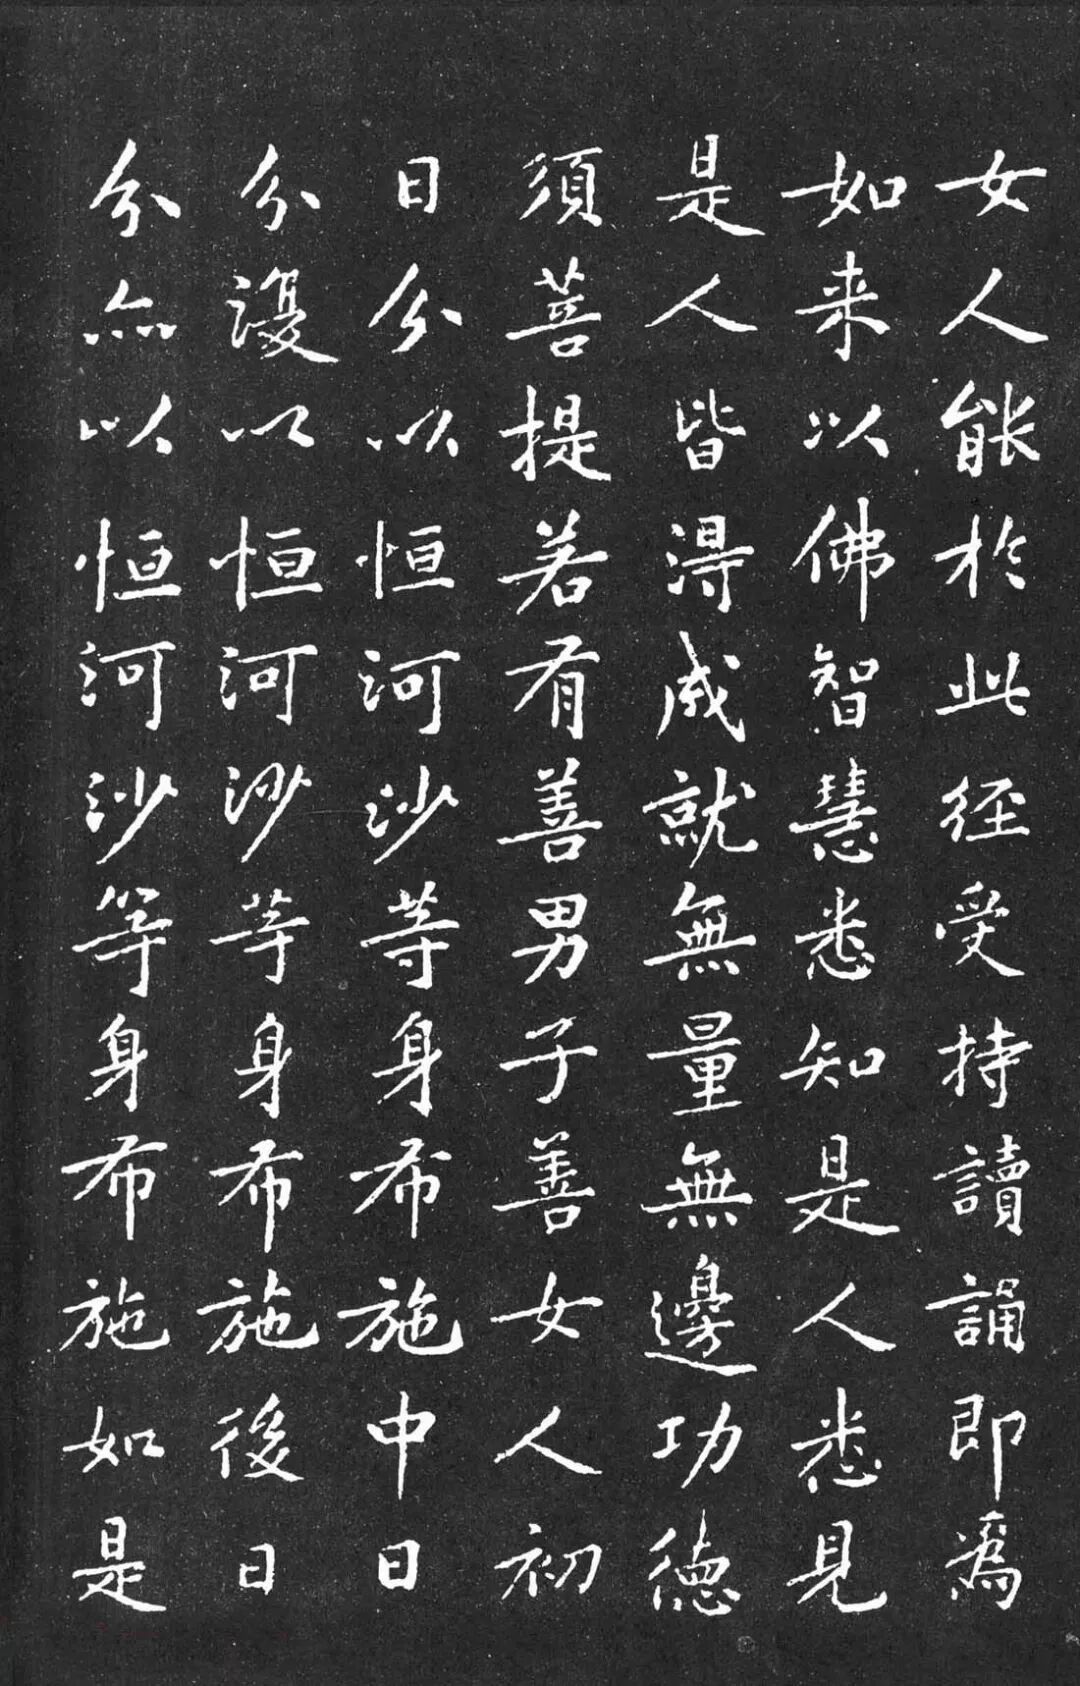 女人能於此経受持讀誦即為
如来以佛智慧悉知是人悉見
是人皆得成就無量無邊功德
須菩提若有善男子善女人初
日分以恒河沙等身布施中日
分復以恒河沙等身布施後日
分亦以恒河沙等身布施如是